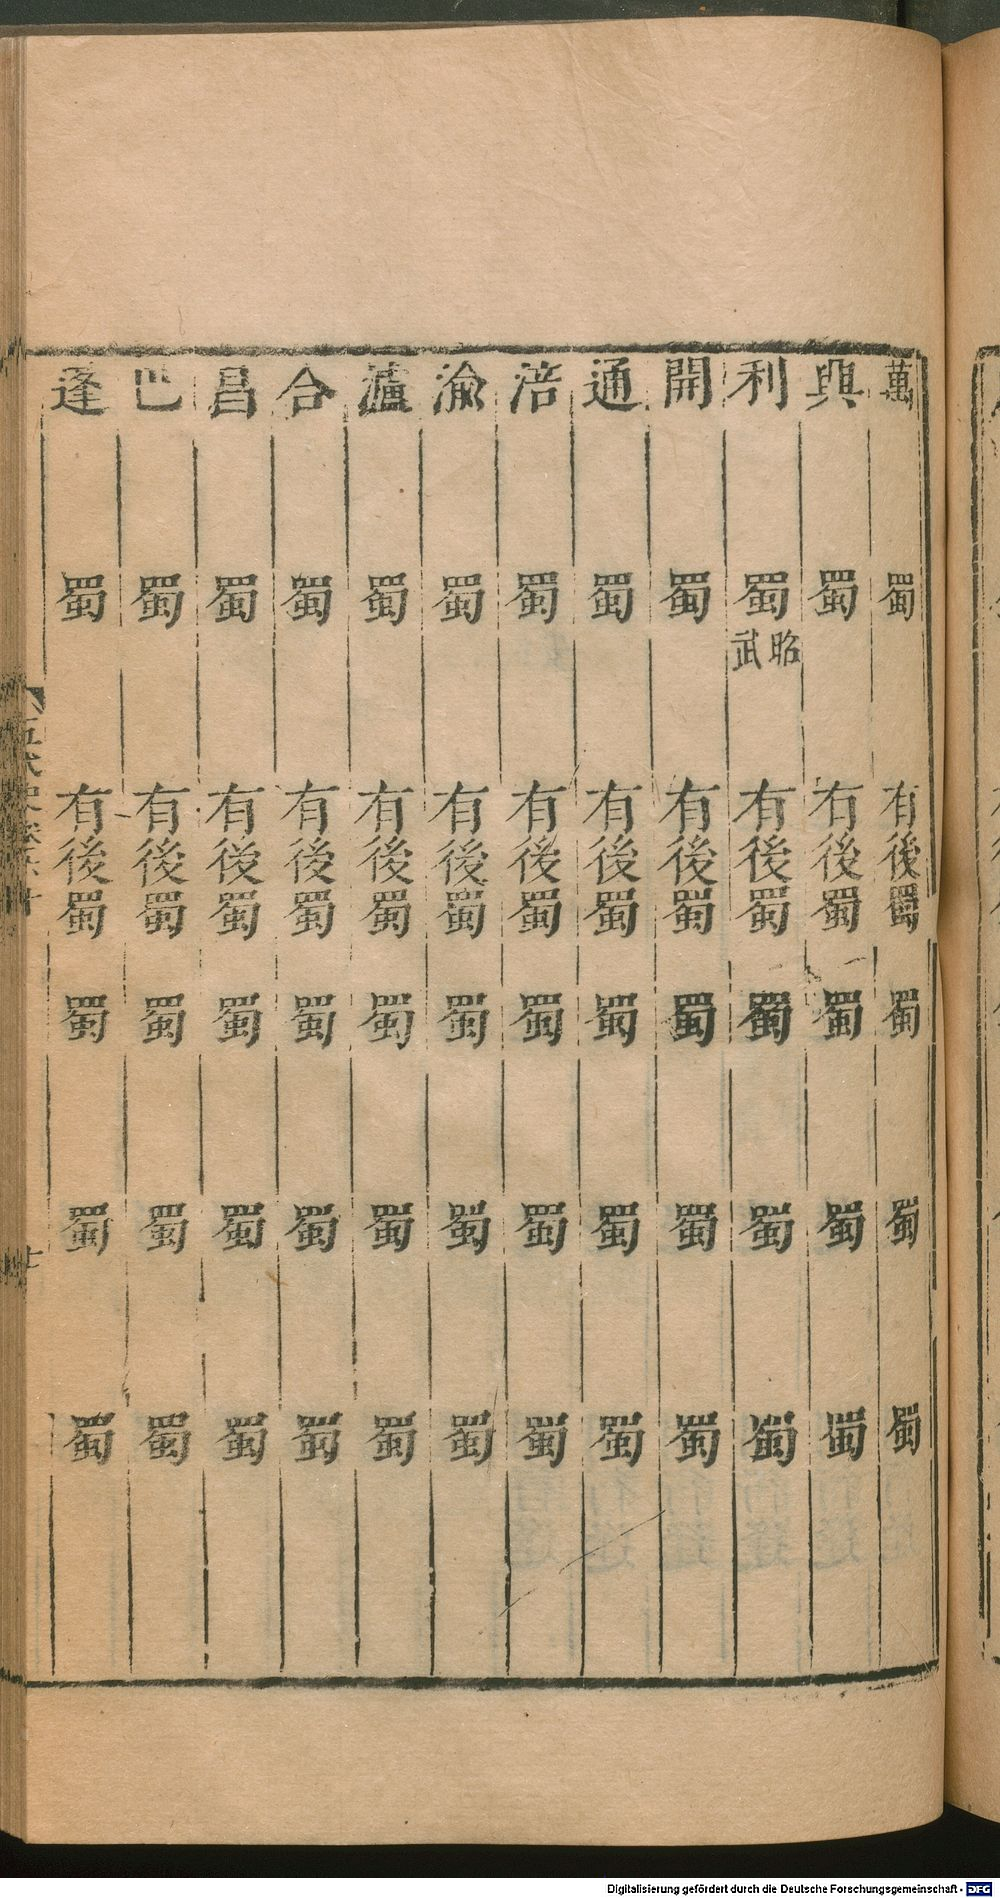 萬 蜀 有後蜀 蜀 蜀 蜀
興 蜀 有後蜀 蜀 蜀 蜀
利 蜀昭武 有後蜀 蜀 蜀 蜀
開 蜀 有後蜀 蜀 蜀 蜀
通 蜀 有後蜀 蜀 蜀 蜀
涪 蜀 有後蜀 蜀 蜀 蜀
渝 蜀 有後蜀 蜀 蜀 蜀
瀘 蜀 有後蜀 蜀 蜀 蜀
合 蜀 有後蜀 蜀 蜀 蜀
昌 蜀 有後蜀 蜀 蜀 蜀
巴 蜀 有後蜀 蜀 蜀 蜀
蓬 蜀 有後蜀 蜀 蜀 蜀
五代史
Digitalisierung gefördert durch die Deutsche Forschungsgemeinschaft - DFG